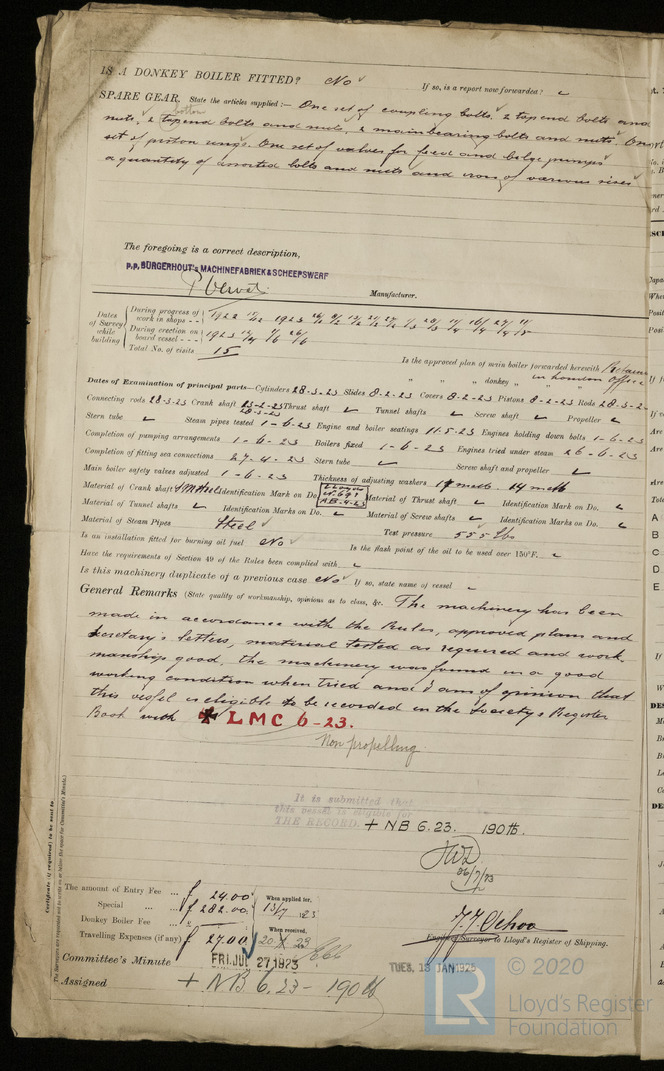 IS A DONKEY BOILER FITTED? No If so, is a report now forwarded?
SPARE GEAR. State the articles supplied :— One set of coupling bolts. 2 topend bolts and
nuts, 2 bottom end bolts and nuts, 2 main bearing bolts and nuts. One
set of piston rings. One set of valves for feed and bilge pumps
a quantity of assorted bolts and nuts and iron of various sizes
The foregoing is a correct description,
p.p. BURGERHOUT's MACHINEFABRIEK & SCHEEPSWERF
Manufacturer.
Dates of Survey while building
During progress of work in shops - - 1922 1923
During erection on board vessel - - - 1923
Total No. of visits 15
Is the approved plan of main boiler forwarded herewith Retained
" " " donkey " " " in London office
Dates of Examination of principal parts—Cylinders 28-3-23 Slides 8-2-23 Covers 8-2-23 Pistons 8-2-23 Rods 28-3-23
Connecting rods 28-3-23 Crank shaft 28-3-23 Thrust shaft Tunnel shafts Screw shaft Propeller
Stern tube Steam pipes tested 1-6-23 Engine and boiler seatings 11-5-23 Engines holding down bolts 1-6-23
Completion of pumping arrangements 1-6-23 Boilers fixed 1-6-23 Engines tried under steam 26-6-23
Completion of fitting sea connections 27-4-23 Stern tube Screw shaft and propeller
Main boiler safety valves adjusted 1-6-23 Thickness of adjusting washers
Material of Crank shaft S M Steel Identification Mark on Do. Material of Thrust shaft Identification Mark on Do.
Material of Tunnel shafts Identification Marks on Do. Material of Screw shafts Identification Marks on Do.
Material of Steam Pipes Steel Test pressure 555 lbs
Is an installation fitted for burning oil fuel No Is the flash point of the oil to be used over 150°F.
Have the requirements of Section 49 of the Rules been complied with
Is this machinery duplicate of a previous case No If so, state name of vessel
General Remarks (State quality of workmanship, opinions as to class, &c. The machinery has been
made in accordance with the Rules, approved plans and
Secretary's letters, material tested as required and work-
manship good, the machinery was found in a good
working condition when tried and I am of opinion that
this vessel is eligible to be recorded in the Society's Register
Book with ✠ LMC 6-23.
Non propelling
It is submitted that
this vessel is eligible for
THE RECORD. + NB 6.23. 190 lb.
Certificate (if required) to be sent to
The Surveyors are requested not to write on or below the space for Committee's Minute.
The amount of Entry Fee ... £ 24.00
Special ... ... £ 282.00
Donkey Boiler Fee ... £
Travelling Expenses (if any) £ 27.00
When applied for,
13/7 1923
When received,
J.J. Ochoa
Engineer Surveyor to Lloyd's Register of Shipping.
Committee's Minute FRI. JUL 27 1923
TUES. 13 JAN 1925
Assigned + NB 6.23 - 190 lb
© 2020
LR
Lloyd's Register
Foundation